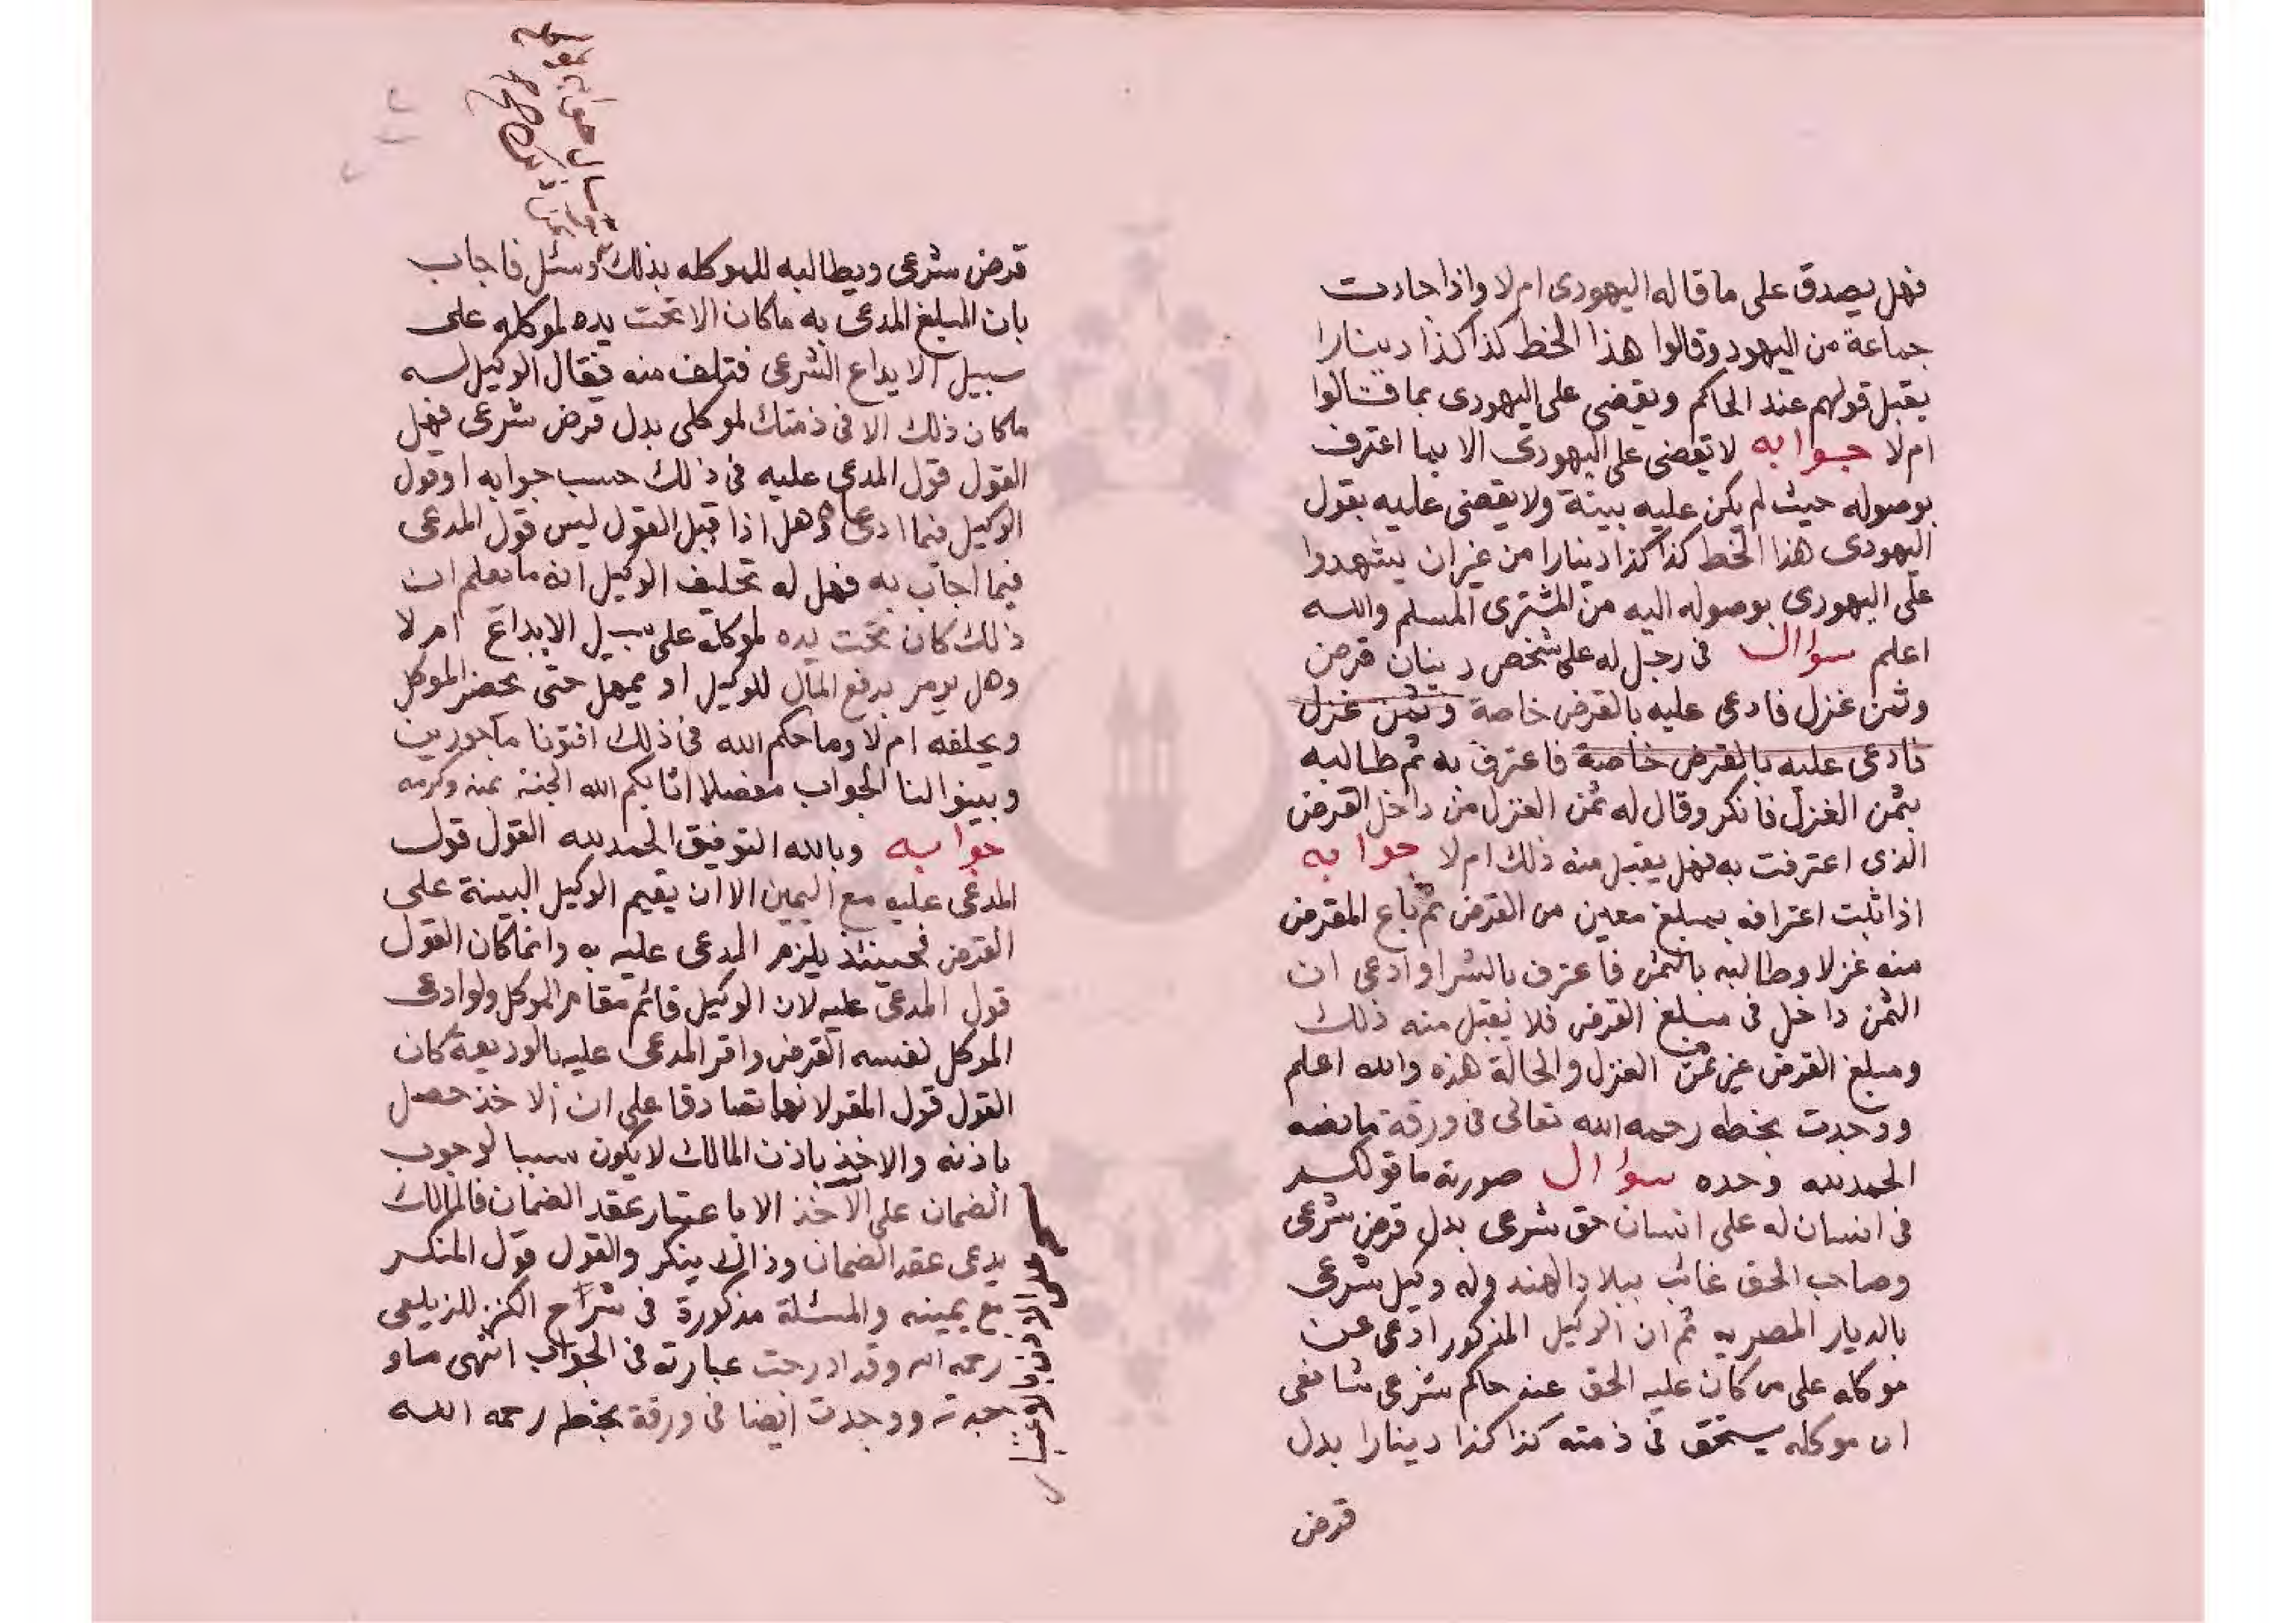 فهل يصدق على ما قاله اليهودى ام لا واذا جاءت
جماعة من اليهود وقالوا هذا الخط كذا كذا دينارا
يقبل قولهم عند الحاكم ويقضى على اليهودى بما قالوا
ام لا جوابه لا يقضى على اليهودى الا بما اعترف
بوصوله حيث لم يكن عليه بينة ولا يقضى عليه بقول
اليهودى هذا الخط كذا كذا دينارا من غير ان يشهدوا
على اليهودى بوصوله اليه من المشترى المسلم والله
اعلم سؤال فى رجل له على شخص دينان قرض
وثمن غزل فادعى عليه بالقرض خاصة وثمن غزل
فادعى عليه بالقرض خاصة فاعترف به ثم طالبه
بثمن الغزل فانكر وقال له ثمن الغزل من داخل القرض
الذى اعترفت به فهل يقبل منه ذلك ام لا جوابه
اذا ثبت اعترافه بمبلغ معين من القرض ثم باع المقرض
منه غزلا وطالبه بالثمن فاعترف بالشرا وادعى ان
الثمن داخل فى مبلغ القرض فلا يقبل منه ذلك
ومبلغ القرض غير ثمن الغزل والحالة هذه والله اعلم
ووجدت بخطه رحمه الله تعالى فى ورقة ما نصه
الحمد لله وحده سؤال صورته ما قولكم
فى انسان له على انسان حق شرعى بدل قرض شرعى
وصاحب الحق غائب ببلاد الهند وله وكيل شرعى
بالديار المصريه ثم ان الوكيل المذكور ادعى عن
موكله على من كان عليه الحق عند حاكم شرعى شافعى
ان موكله يستحق فى ذمته كذا كذا دينارا بدل
قرض
قرض شرعى ويطالبه للموكله بذلك وسئل فاجاب
بان المبلغ المدعى به ما كان الا تحت يده لموكله على
سبيل الايداع الشرعى فتلف منه فقال الوكيل له
ما كان ذلك الا فى ذمتك لموكلى بدل قرض شرعى فهل
القول قول المدعى عليه فى ذلك حسب جوابه او قول
الوكيل فيما ادعاه وهل اذا قبل القول ليس قول المدعى
فيما اجاب به فهل له تحليف الوكيل انه ما يعلم ان
ذلك كان تحت يده لموكله على سبيل الايداع ام لا
وهل يومر بدفع المال للوكيل او يمهل حتى يحضر الموكل
ويحلفه ام لا وما حكم الله فى ذلك افتونا ماجورين
وبينوا لنا الجواب مفصلا اثابكم الله الجنة بمنه وكرمه
جوابه وبالله التوفيق الحمد لله القول قول
المدعى عليه مع اليمين الا ان يقيم الوكيل البينة على
القرض فحينئذ يلزم المدعى عليه به وانما كان القول
قول المدعى عليه لان الوكيل قائم مقام الموكل ولو ادعى
الموكل لنفسه القرض واقر المدعى عليه بالوديعة كان
القول قول المقر لانهما تصادقا على ان الاخذ حصل
باذنه والاخذ باذن المالك لا يكون سببا لوجوب
الضمان على الآخذ الا باعتبار عقد الضمان فالمالك
يدعى عقد الضمان وذاك ينكر والقول قول المنكر
مع يمينه والمسئلة مذكورة فى شراح الكنز للزيلعى
رحمه الله وقد ادرجت عبارته فى الجواب انتهى ما و
جدته ووجدت ايضا فى ورقة بخطه رحمه الله